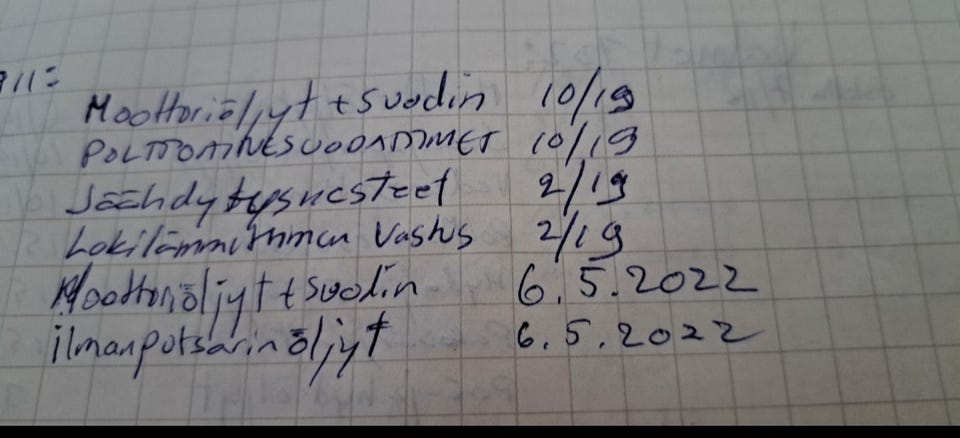 911:
Moottoriöljyt + suodin 10/19
POLTTOAINESUODATTIMET 10/19
Jäähdytysnesteet 2/19
Lohkolämmittimen vastus 2/19
Moottoriöljyt + suodin 6.5.2022
ilmanputsarin öljyt 6.5.2022